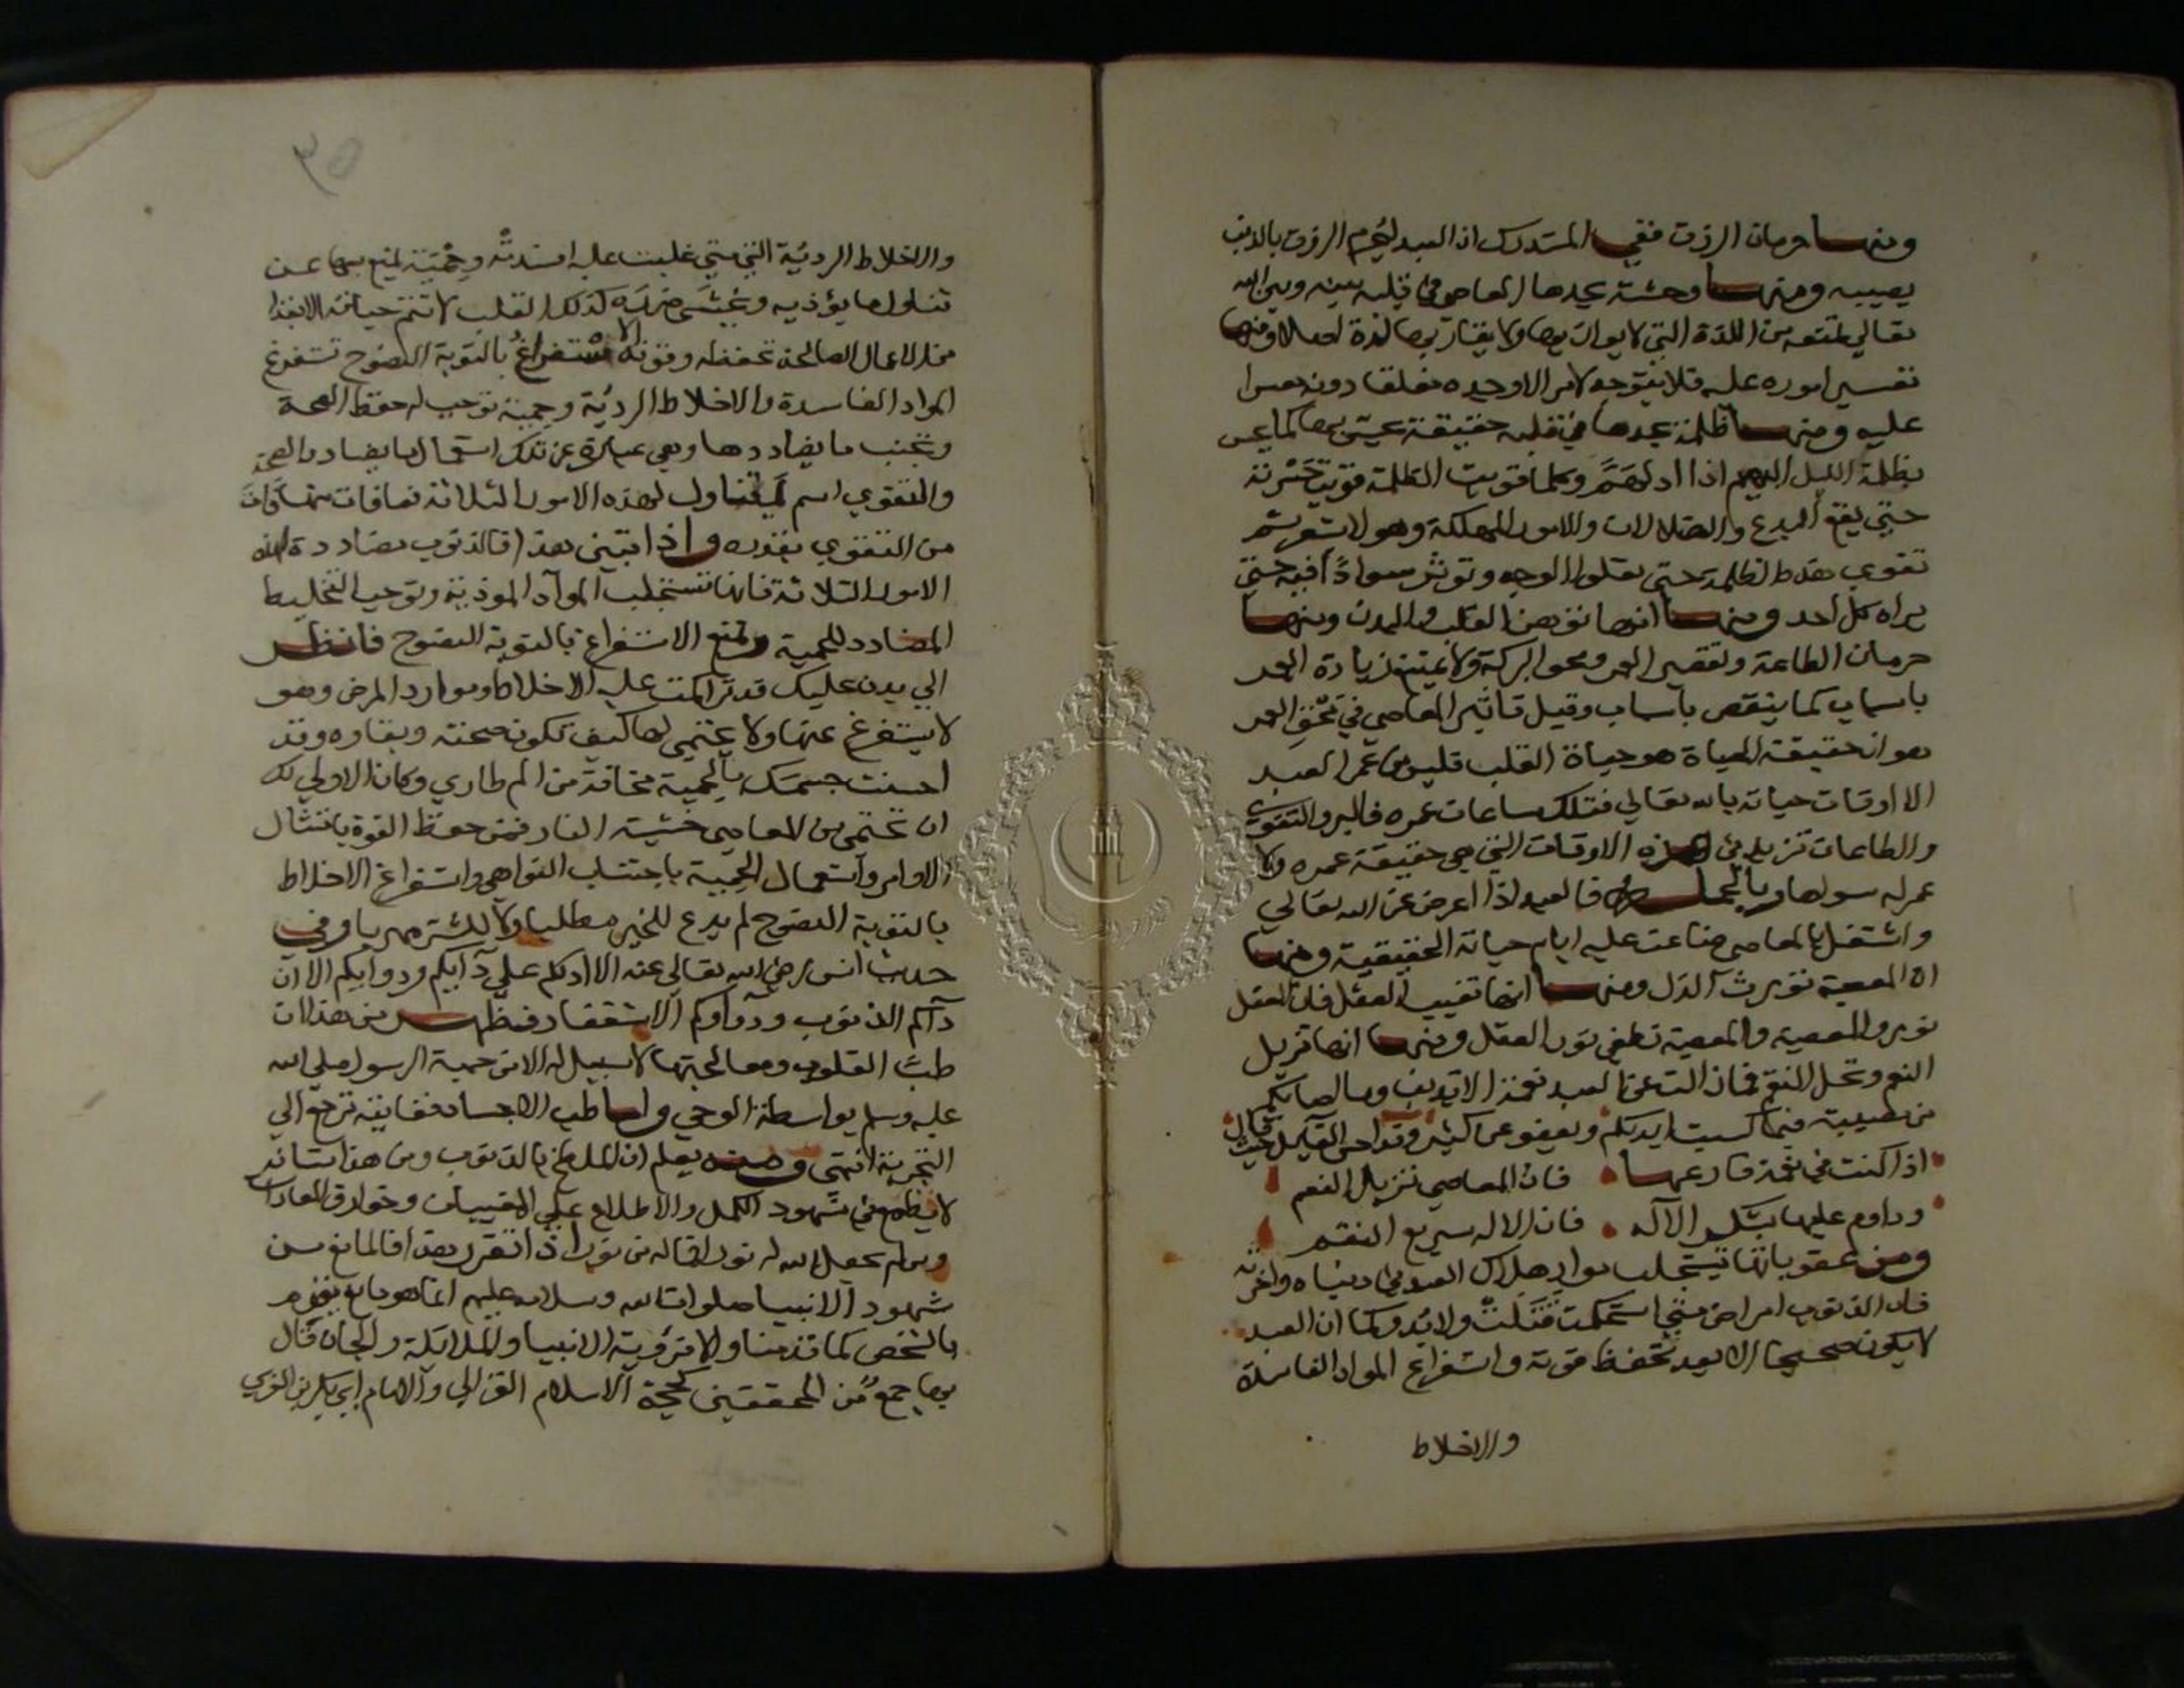 ومنها حرمان الرزق ففي المستدرك ان العبد ليحرم الرزق بالذنب
يصيبه ومنها وحشة يجدها العاصي في قلبه بينه وبين الله
تعالي تمنعه من اللذة التي لا يوازيها ولا يقاربها لذة اصلا ومنها
تعسير اموره عليه فلا يتوجه لامر الا وجده مغلقا دونه معسرا
عليه ومنها ظلمة يجدها في قلبه حقيقة يحس بها كما يحس
بظلمة الليل البهيم اذا ادلهم وكلما قويت الظلمة قويت حيرته
حتي يقع البدع والضلالات والامور المهلكة وهو لا يشعر ثم
تقوي هذه الظلمة حتي تعلوا الوجه وتوثر سوادا فيه حتي
يراه كل احد ومنها انها توهن القلب والبدن ومنها
حرمان الطاعة وتقصير العمر ومحو البركة ولا يمتنع زيادة العمر
باسباب كما ينقص باسباب وقيل تاثير المعاصي في محق العمر
هو ان حقيقة الحياة هو حياة القلب فليس عمر العبد
الا اوقات حياته بالله تعالي فتلك ساعات عمره فالبر والتقوي
والطاعات تزيد في هذه الاوقات التي هي حقيقة عمره ولا
عمر له سواها وبالجملة فالعبد اذا اعرض عن الله تعالي
واشتغل بالمعاصي ضاعت عليه ايام حياته الحقيقية ومنها
ان المعصية تورث الذل ومنها انها تغيب العقل فان العقل
نور والمعصية والمعصية تطفي نور العقل ومنها انها تزيل
النعم وتحل النقم فما زالت عن العبد نعمة الا بذنب وما اصابكم
من مصيبة فبما كسبت ايديكم ويعفو عن كثير وقد احسن القايل حيث قال
اذا كنت في نعمة فارعها فان المعاصي تزيل النعم
وداوم عليها بشكر الاله فان الاله سريع النقم
ومن عقوباتها تستجلب مواد هلاك العبد في دنياه واخرته
فان الذنوب امراض متي استحكمت قتلت ولا بد وكما ان العبد
لا يكون صحيحا الا بعد تحفظ قوته واستفراغ المواد الفاسدة
والاخلاط
والاخلاط الرديّة التي متي غلبت عليه افسدته وحمية يمتنع بها عن
تناول ما يؤذيه ويخشي ضرره كذلك القلب لا تتم حياته الا بغذا
من الاعمال الصالحة تحفظ قوته والاستفراغ بالتوبة النصوح تستفرغ
المواد الفاسدة والاخلاط الرديّة وحمية توجب له حفظ الصحة
وتجنب ما يضاددها وهي عبارة عن ترك استعمال ما يضاد الصحة
والتقوي اسم يتناول لهذه الامور الثلاثة فما فات منها فات
من التقوي بقدره واذا تبين هذا فالذنوب مضاددة لهذه
الامور الثلاثة فانها تستجلب المواد الموذية وتوجب التخليط
المضادد للحمية وتمنع الاستفراغ بالتوبة النصوح فانظر
الي بدن عليك قد تراكمت عليه الاخلاط وموارد المرض وهو
لا يستفرغ عنها ولا يحتمي لها كيف تكون صحته وبقاوه وقد
احسنت جسمك بالحمية مخافة من الم طاري وكان الاولي لك
ان تحتمي من المعاصي خشية النار فمن حفظ القوة بامتثال
الاوامر واستعمال الحمية باجتناب النواهي واستفراغ الاخلاط
بالتوبة النصوح لم يدع للخير مطلبا ولا للشر مهربا وفي
حديث انس رضي الله تعالي عنه الا ادلكم علي دآيكم ودوايكم الا ان
دآكم الذنوب ودوآوكم الاستغفار فظهر من هذا ان
طب القلوب ومعالجتها لا سبيل له الا من جهة الرسول صلي الله
عليه وسلم بواسطة الوحي واما طب الاجساد فغايته ترجع الي
التجربة انتهي ومنه يعلم ان الملطخ بالذنوب ومن هذا شانه
لا يطمع في شهود الكمل والاطلاع علي المغيبات وخوارق العادات
ومن لم يجعل الله له نورا فما له من نور اذا تقرر هذا فالمانع من
شهود الانبيا صلوات الله وسلامه عليهم انما هو مانع يقوم
بالشخص كما قدمنا والا فرؤية الانبيا والملايكة والجان قال
بها جمع من المحققين كحجة الاسلام الغزالي والامام ابي بكر بن العربي